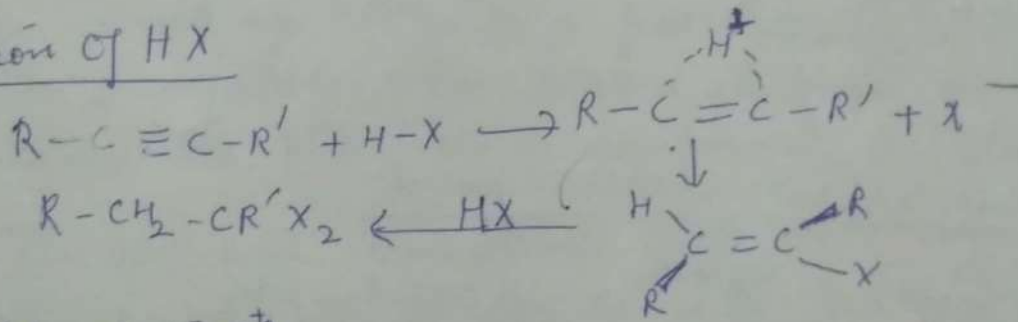 ion of HX
H+
R-C≡C-R' + H-X → R-C=C-R' + X-
↓
R-CH2-CR'X2 ← HX
H R
C=C
R X
+